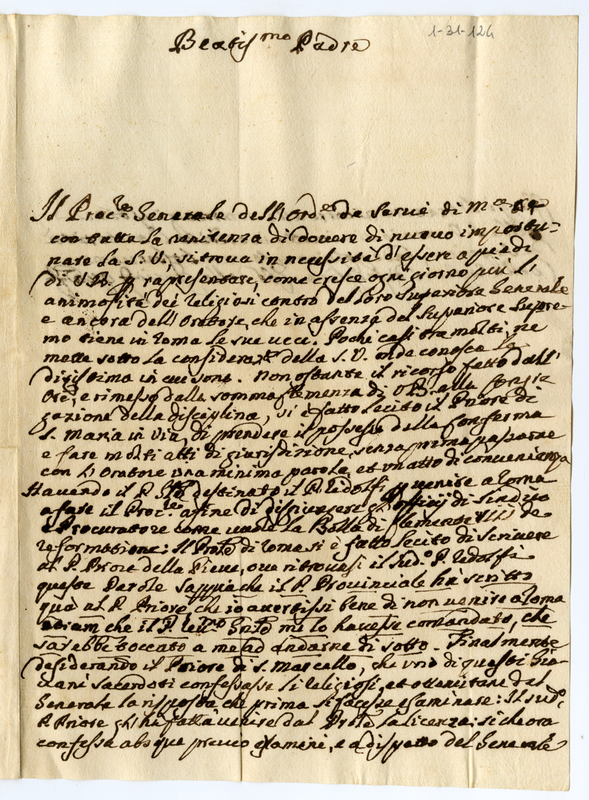 Beatiss.mo Padre
1-31-126
Il Proc.re Generale dell'Ord.e de Servi di M.a
con tutta la renitenza di dovere di nuovo importu-
nare la S. V., si trova in necessità d'essere a piedi
di V. B. p rapresentare, come cresce ogni giorno più l'
animosità dei religiosi contro del loro Superiore Generale
e ancora dell'Oratore, che in assenza del Superiore Supre-
mo tiene in Roma le sue veci. Pochi casi tra molti ne
mette sotto la consideraz.e della S. V. onde conosca
in cui sono. Non ostante il ricorso fatto dall'
Ore, e rimesso dalla somma Clemenza di V. B. alla Congre
gazione della disciplina, si è fatto lecito il Priore di
S. Maria in Via, di prendere il possesso della Conferma
e fare molti atti di giurisdizione, senza prima passarne
con l'Oratore una minima parola, et un atto di convenienza
Havendo il P. Gñle destinato il P. Ridolfi p venire a Roma
a fare il Proc.re, affine di disgiungere gl'officij di Sindico
e Procuratore come vuole la Bolla di Clemente VIII de
reformatione: Il Prõle di Roma si è fatto lecito di scrivere
al P. Priore della Pieve, ove ritrovasi il sud.o P. Ridolfi
queste Parole Sappia che il P. Provinciale hà scritto
quà al P. Priore che io avertissi bene di non venire a Roma
etiam che il P. Gñle me lo havesse comandato, che
sarebbe toccato a me ad andarne di sotto. Finalmente
desiderando il Priore di S. Marcello, che uno di questi Gio-
vani sacerdoti confessasse li Religiosi, et ottenutane dal
Generale la risposta che prima si facesse esaminare: Il sud.o
P. Priore gli hà fatta venire dal Prõle la licenza: sì che ora
confessa absque previo examine, e a dispetto del Generale